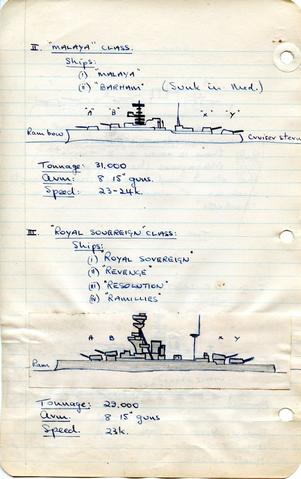 II. "MALAYA" CLASS.
Ships:
(i) "MALAYA"
(ii) "BARHAM" (Sunk in Med.)
"A" "B" "X" "Y"
Ram bow Cruiser stern
Tonnage: 31,000
Arm: 8 15" guns.
Speed: 23-24k.
III. "ROYAL SOVEREIGN" CLASS:
Ships:
(i) "ROYAL SOVEREIGN"
(ii) "REVENGE"
(iii) "RESOLUTION"
(iv) "RAMILLIES"
A B X Y
Ram
Tonnage: 29,000
Arm. 8 15" guns
Speed. 23k.